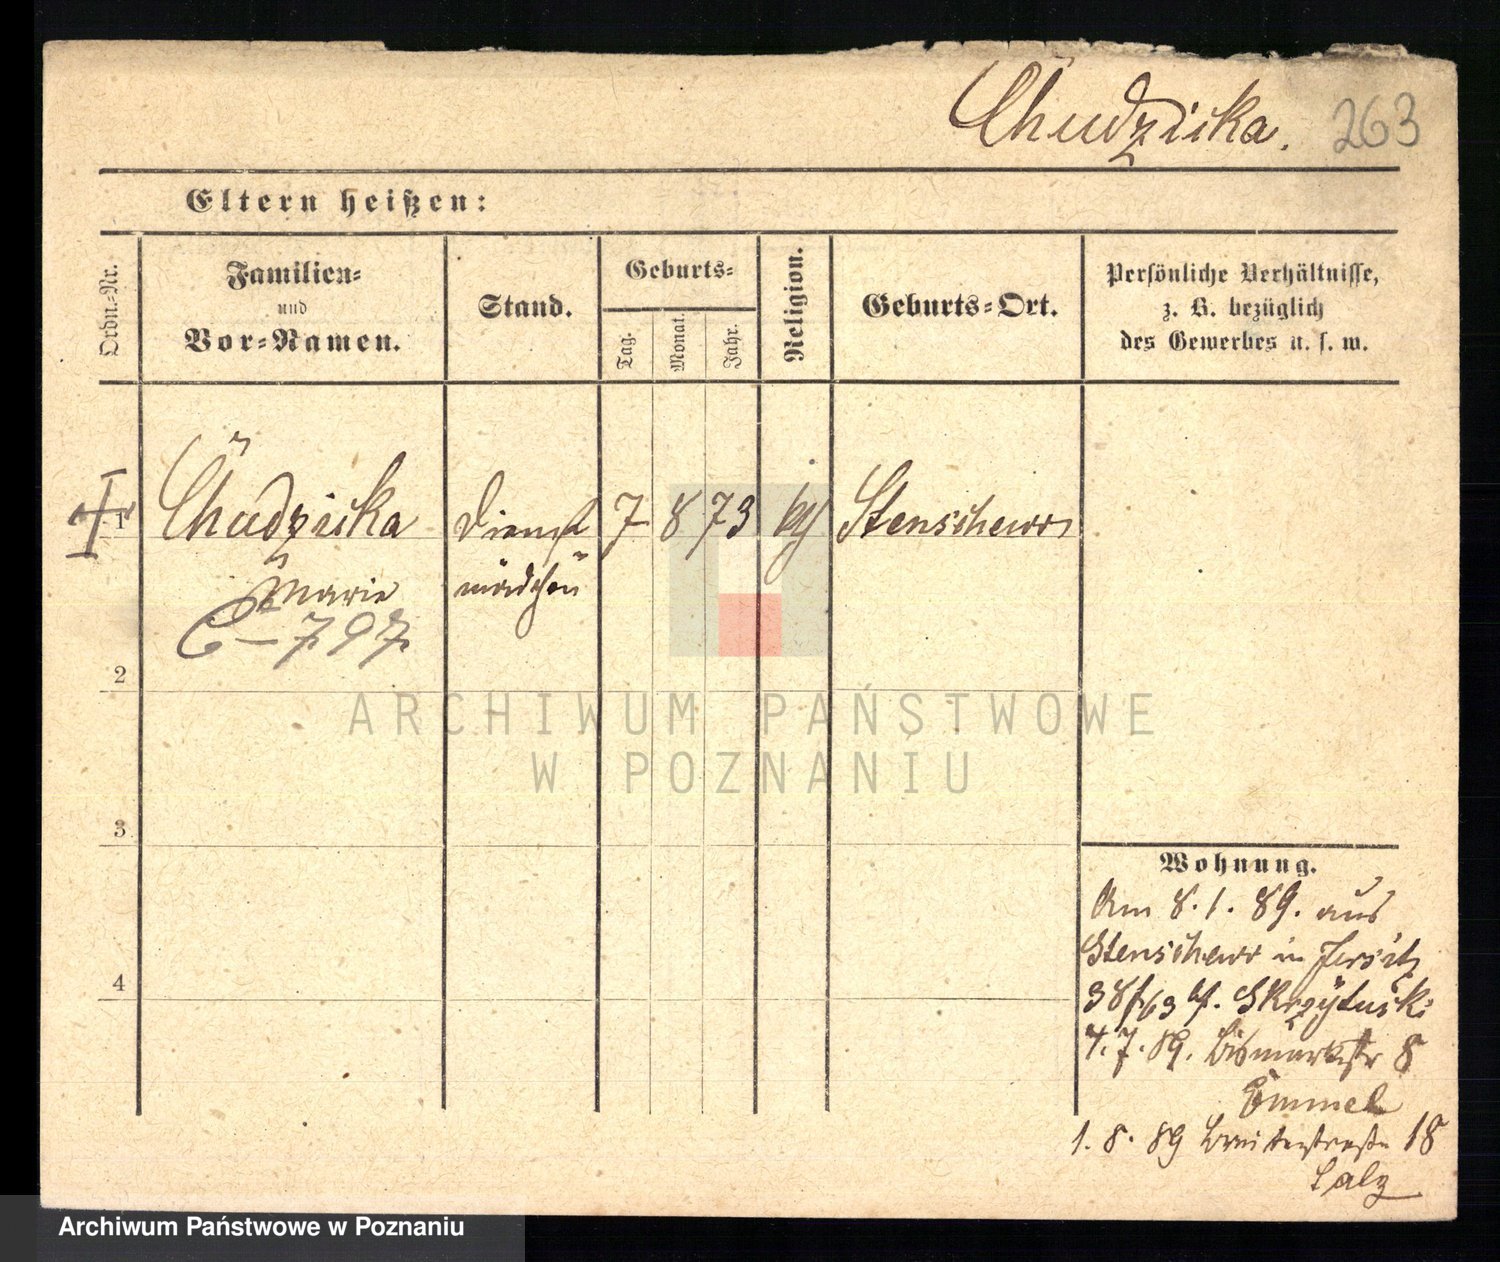 Chudzicka. 263
Eltern heißen:
Ordn.-Nr.
Familien-
und
Vor-Namen.
Stand.
Geburts-
Tag.
Monat.
Jahr.
Religion.
Geburts-Ort.
Persönliche Verhältnisse,
z. B. bezüglich
des Gewerbes u. s. w.
1 Chudzicka Dienst 7 8 73 Stenschewo
Marie mädchen
C-797
2
3
4
Wohnung.
Am 8.1.89. aus
Stenschewo in Jersitz
38/63 bf. Skrzytuski
7.89. Bismarkstr 8
1.8.89 Breitestraße 18
Salz
ARCHIWUM PAŃSTWOWE
W POZNANIU
Archiwum Państwowe w Poznaniu